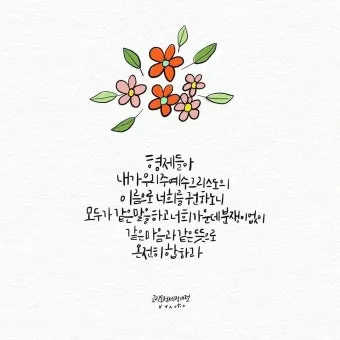 형제들아
내가 우리 주 예수 그리스도의
이름으로 너희를 권하노니
모두가 같은 말을 하고 너희 가운데 분쟁이 없이
같은 마음과 같은 뜻으로
온전히 합하라
고린도전서 1장 10절